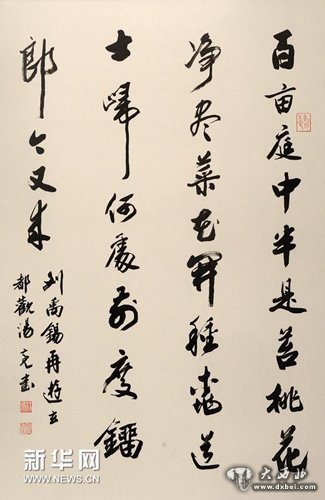 百亩庭中半是苔桃花
净尽菜花開種桃道
士歸何處前度鐂
郎今又来
刘禹錫再遊玄
都觀湯克
新华网
WWW.NEWS.CN
大西北
www.dxbei.com